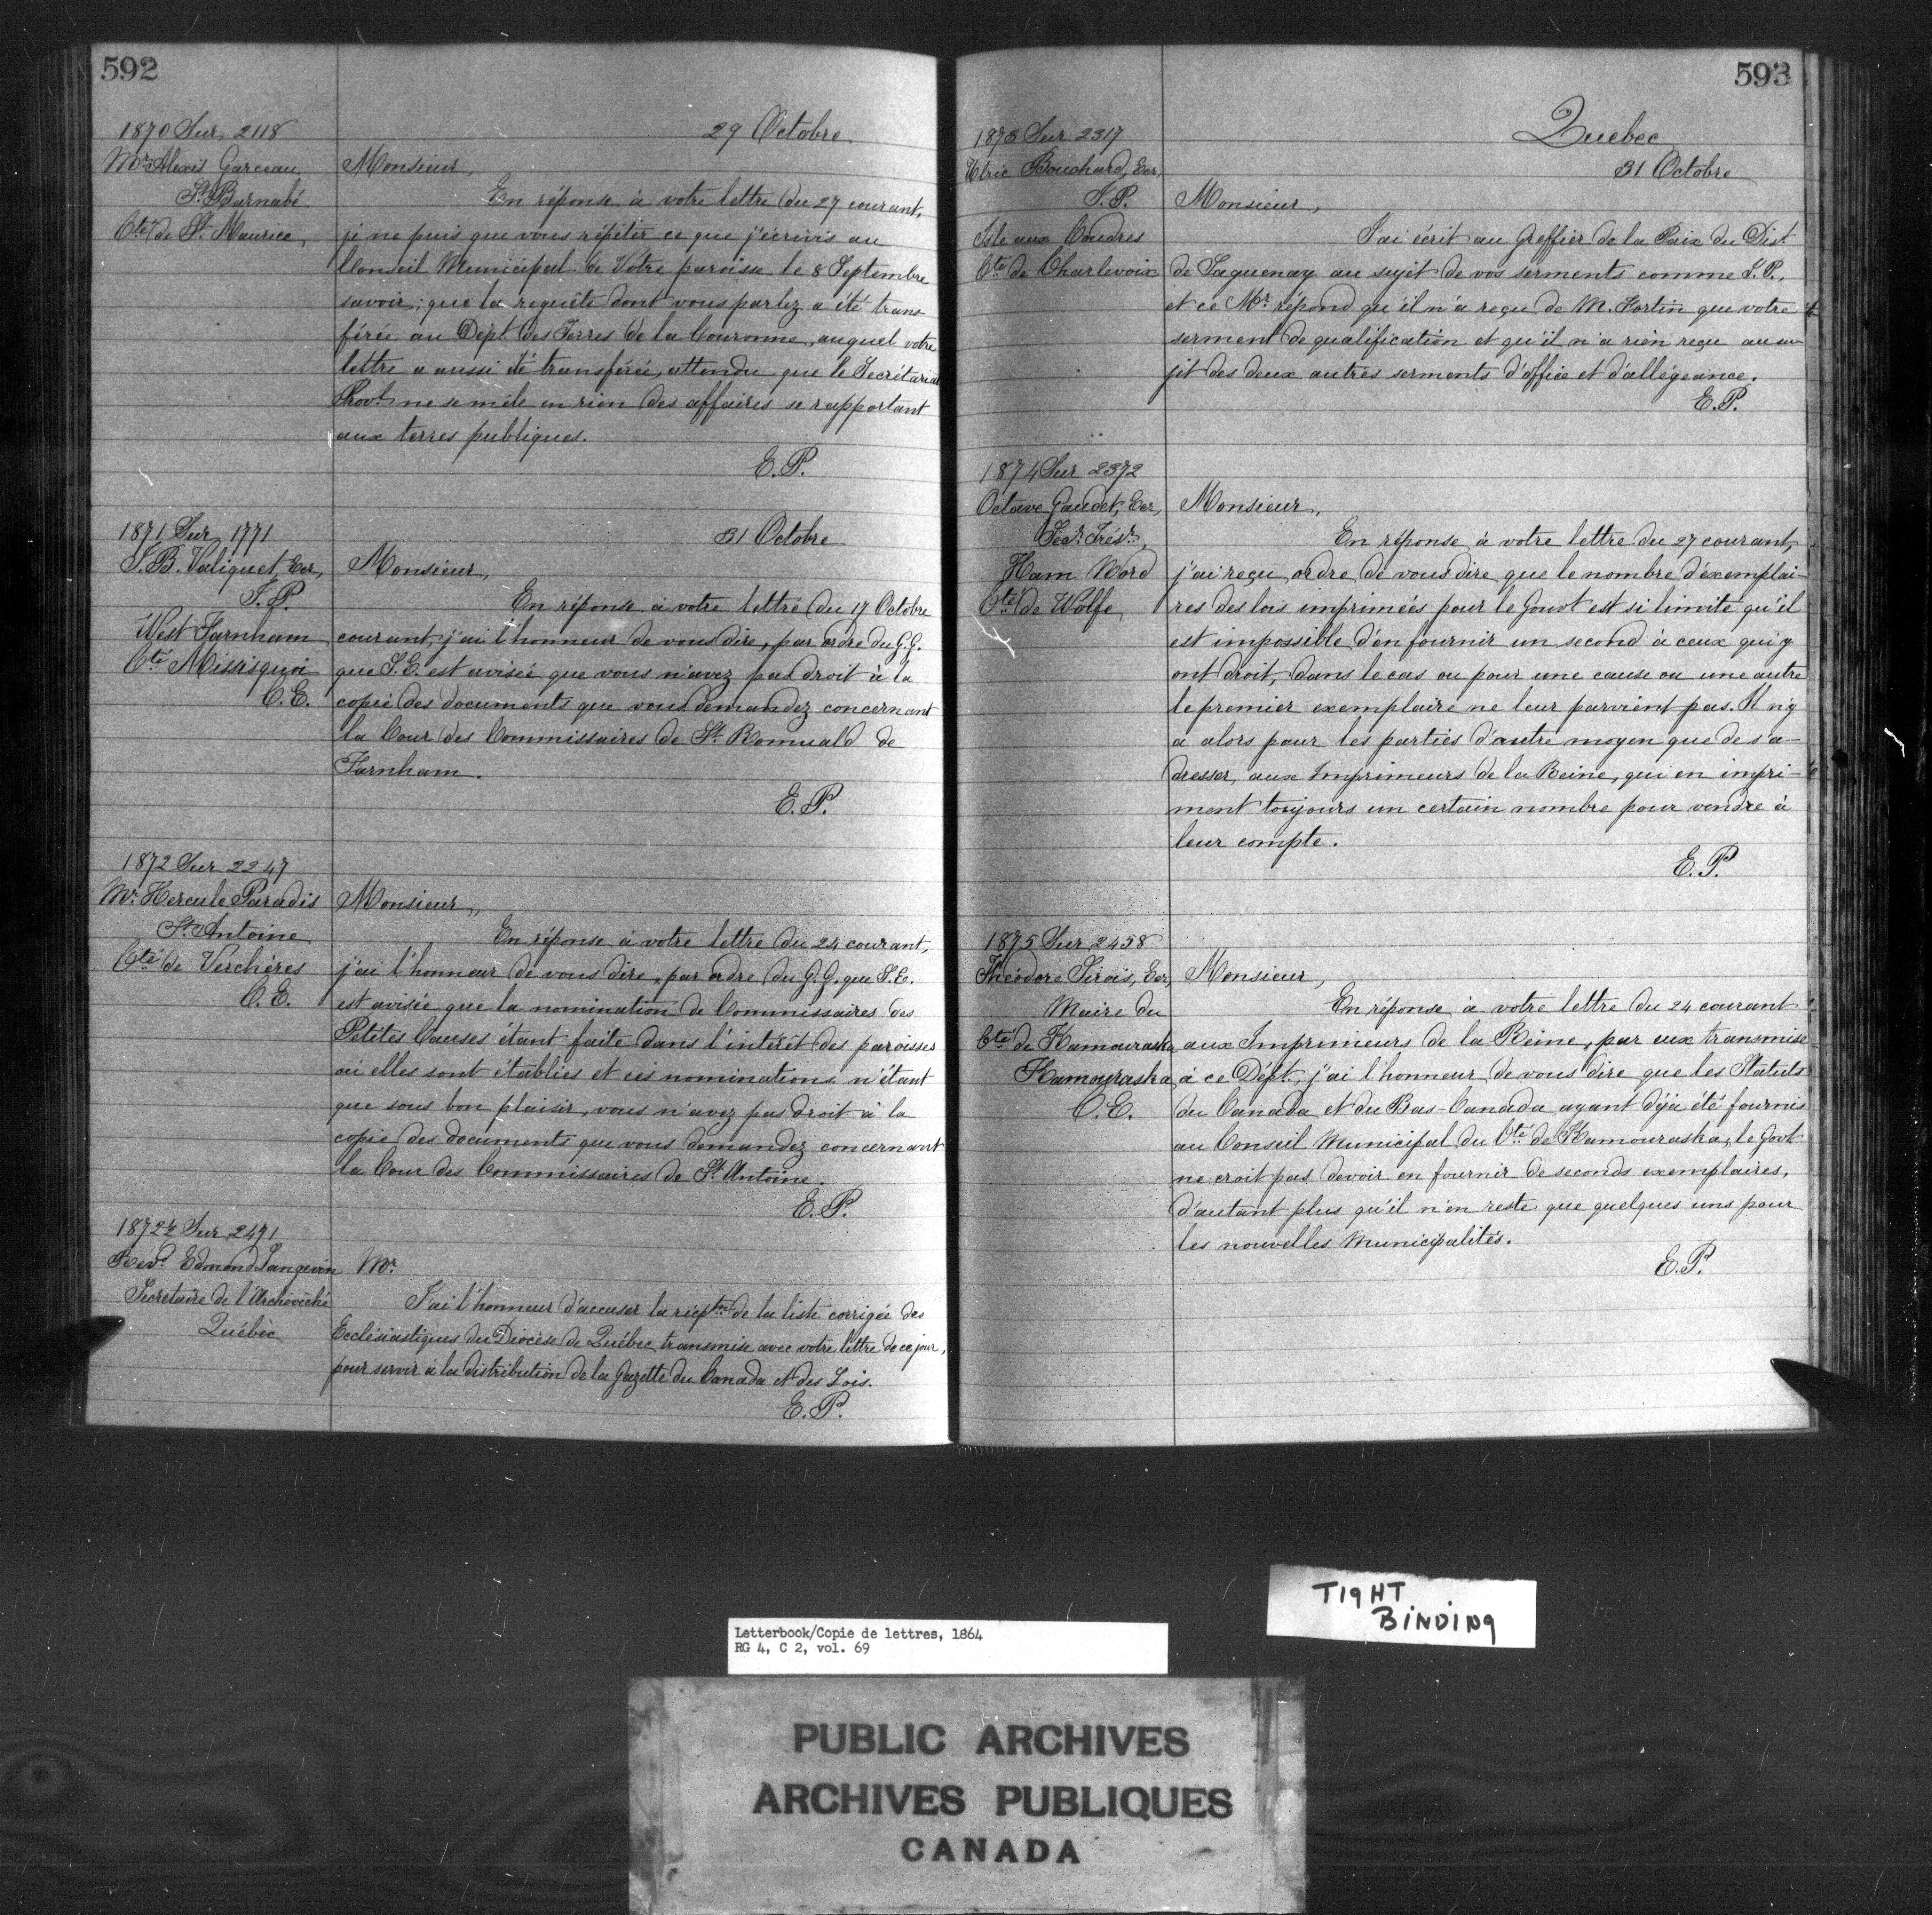 592
1870 Sur 2118
29 Octobre
Mr. Alexis Garceau
St. Barnabé
Cté de St. Maurice
Monsieur,
En réponse à votre lettre du 27 courant,
je ne puis que vous répéter ce que j'écrivis au
Conseil Municipal de Votre paroisse le 8 Septembre
savoir; que la requête dont vous parlez a été trans
férée au Dépt. des Terres de la Couronne, auquel votre
lettre a aussi été transférée, attendu que le Secrétariat
Provl. ne se mêle en rien des affaires se rapportant
aux terres publiques.
E.P.
1871 Sur 1771
31 Octobre
J.B. Valiquet, Ecr,
J.P.
West Farnham
Cté Missisquoi
C.E.
Monsieur,
En réponse à votre lettre du 17 Octobre
courant, j'ai l'honneur de vous dire, par ordre du G.G.
que S.E. est avisée que vous n'avez pas droit à la
copie des documents que vous demandez concernant
la Cour des Commissaires de St. Romuald de
Farnham.
E.P.
1872 Sur 2247
Mr. Hercule Paradis
St. Antoine
Cté de Verchères
C.E.
Monsieur,
En réponse à votre lettre du 24 courant,
j'ai l'honneur de vous dire, par ordre du G.G. que S.E.
est avisée que la nomination de Commissaires des
Petites Causes étant faite dans l'intérêt des paroisses
où elles sont établies et ces nominations n'étant
que sous bon plaisir, vous n'avez pas droit à la
copie des documents que vous demandez concernant
la Cour des Commissaires de St. Antoine.
E.P.
1872½ Sur 2471
Revd. Edmond Langevin
Secrétaire de l'Archévêché
Québec
Mr.
J'ai l'honneur d'accuser la réception de la liste corrigée des
Ecclésiastiques du Diocèse de Québec, transmise avec votre lettre de ce jour,
pour servir à la distribution de la Gazette du Canada et des Lois.
E.P.
593
Quebec
1873 Sur 2317
31 Octobre
Ulric Bouchard, Ecr,
J.P.
Isle aux Coudres
Cté de Charlevoix
Monsieur,
J'ai écrit au Greffier de la Paix du Dist.
de Saguenay au sujet de vos serments comme J.P.,
et ce Mr. répond qu'il n'a reçu de M. Fortin que votre
serment de qualification et qu'il n'a rien reçu au su-
jet des deux autres serments d'office et d'allégeance.
E.P.
1874 Sur 2372
Octave Gaudet, Ecr,
Secr. Trésr.,
Ham Nord
Cté de Wolfe
Monsieur,
En réponse à votre lettre du 27 courant,
j'ai reçu ordre de vous dire que le nombre d'exemplai-
res des lois imprimées pour le Gouvt est si limité qu'il
est impossible d'en fournir un second à ceux qui y
ont droit, dans le cas ou pour une cause ou une autre
le premier exemplaire ne leur parvient pas. Il n'y
a alors pour les parties d'autre moyen que de s'a-
dresser aux Imprimeurs de la Reine, qui en impri-
ment toujours un certain nombre pour vendre à
leur compte.
E.P.
1875 Sur 2458
Théodore Sirois, Ecr,
Maire du
Cté de Kamouraska
Kamouraska
C.E.
Monsieur,
En réponse à votre lettre du 24 courant
aux Imprimeurs de la Reine, par eux transmise
à ce Dépt., j'ai l'honneur de vous dire que les Statuts
du Canada et du Bas-Canada ayant déjà été fournis
au Conseil Municipal du Cté de Kamouraska, le Govt
ne croit pas devoir en fournir de seconds exemplaires,
d'autant plus qu'il n'en reste que quelques uns pour
les nouvelles Municipalités.
E.P.
TIGHT
BINDING
Letterbook/Copie de lettres, 1864
RG 4, C 2, vol. 69
PUBLIC ARCHIVES
ARCHIVES PUBLIQUES
CANADA